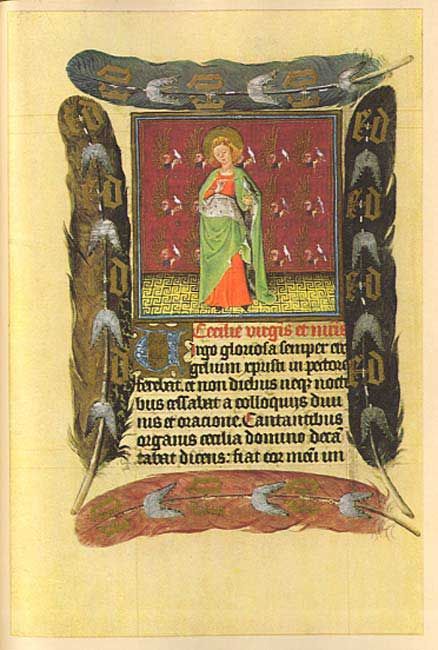 ed
ed
ed
Cecilie virgis et
Virgo gloriosa semper eu
gelium xpristi in pectore
ferebat. et non diebus neqꝫ nocti
bus cessabat a colloquijs diui
nis et oracione. Cantantibus
organis cecilia domino decā
tabat dicens: fiat cor meū im